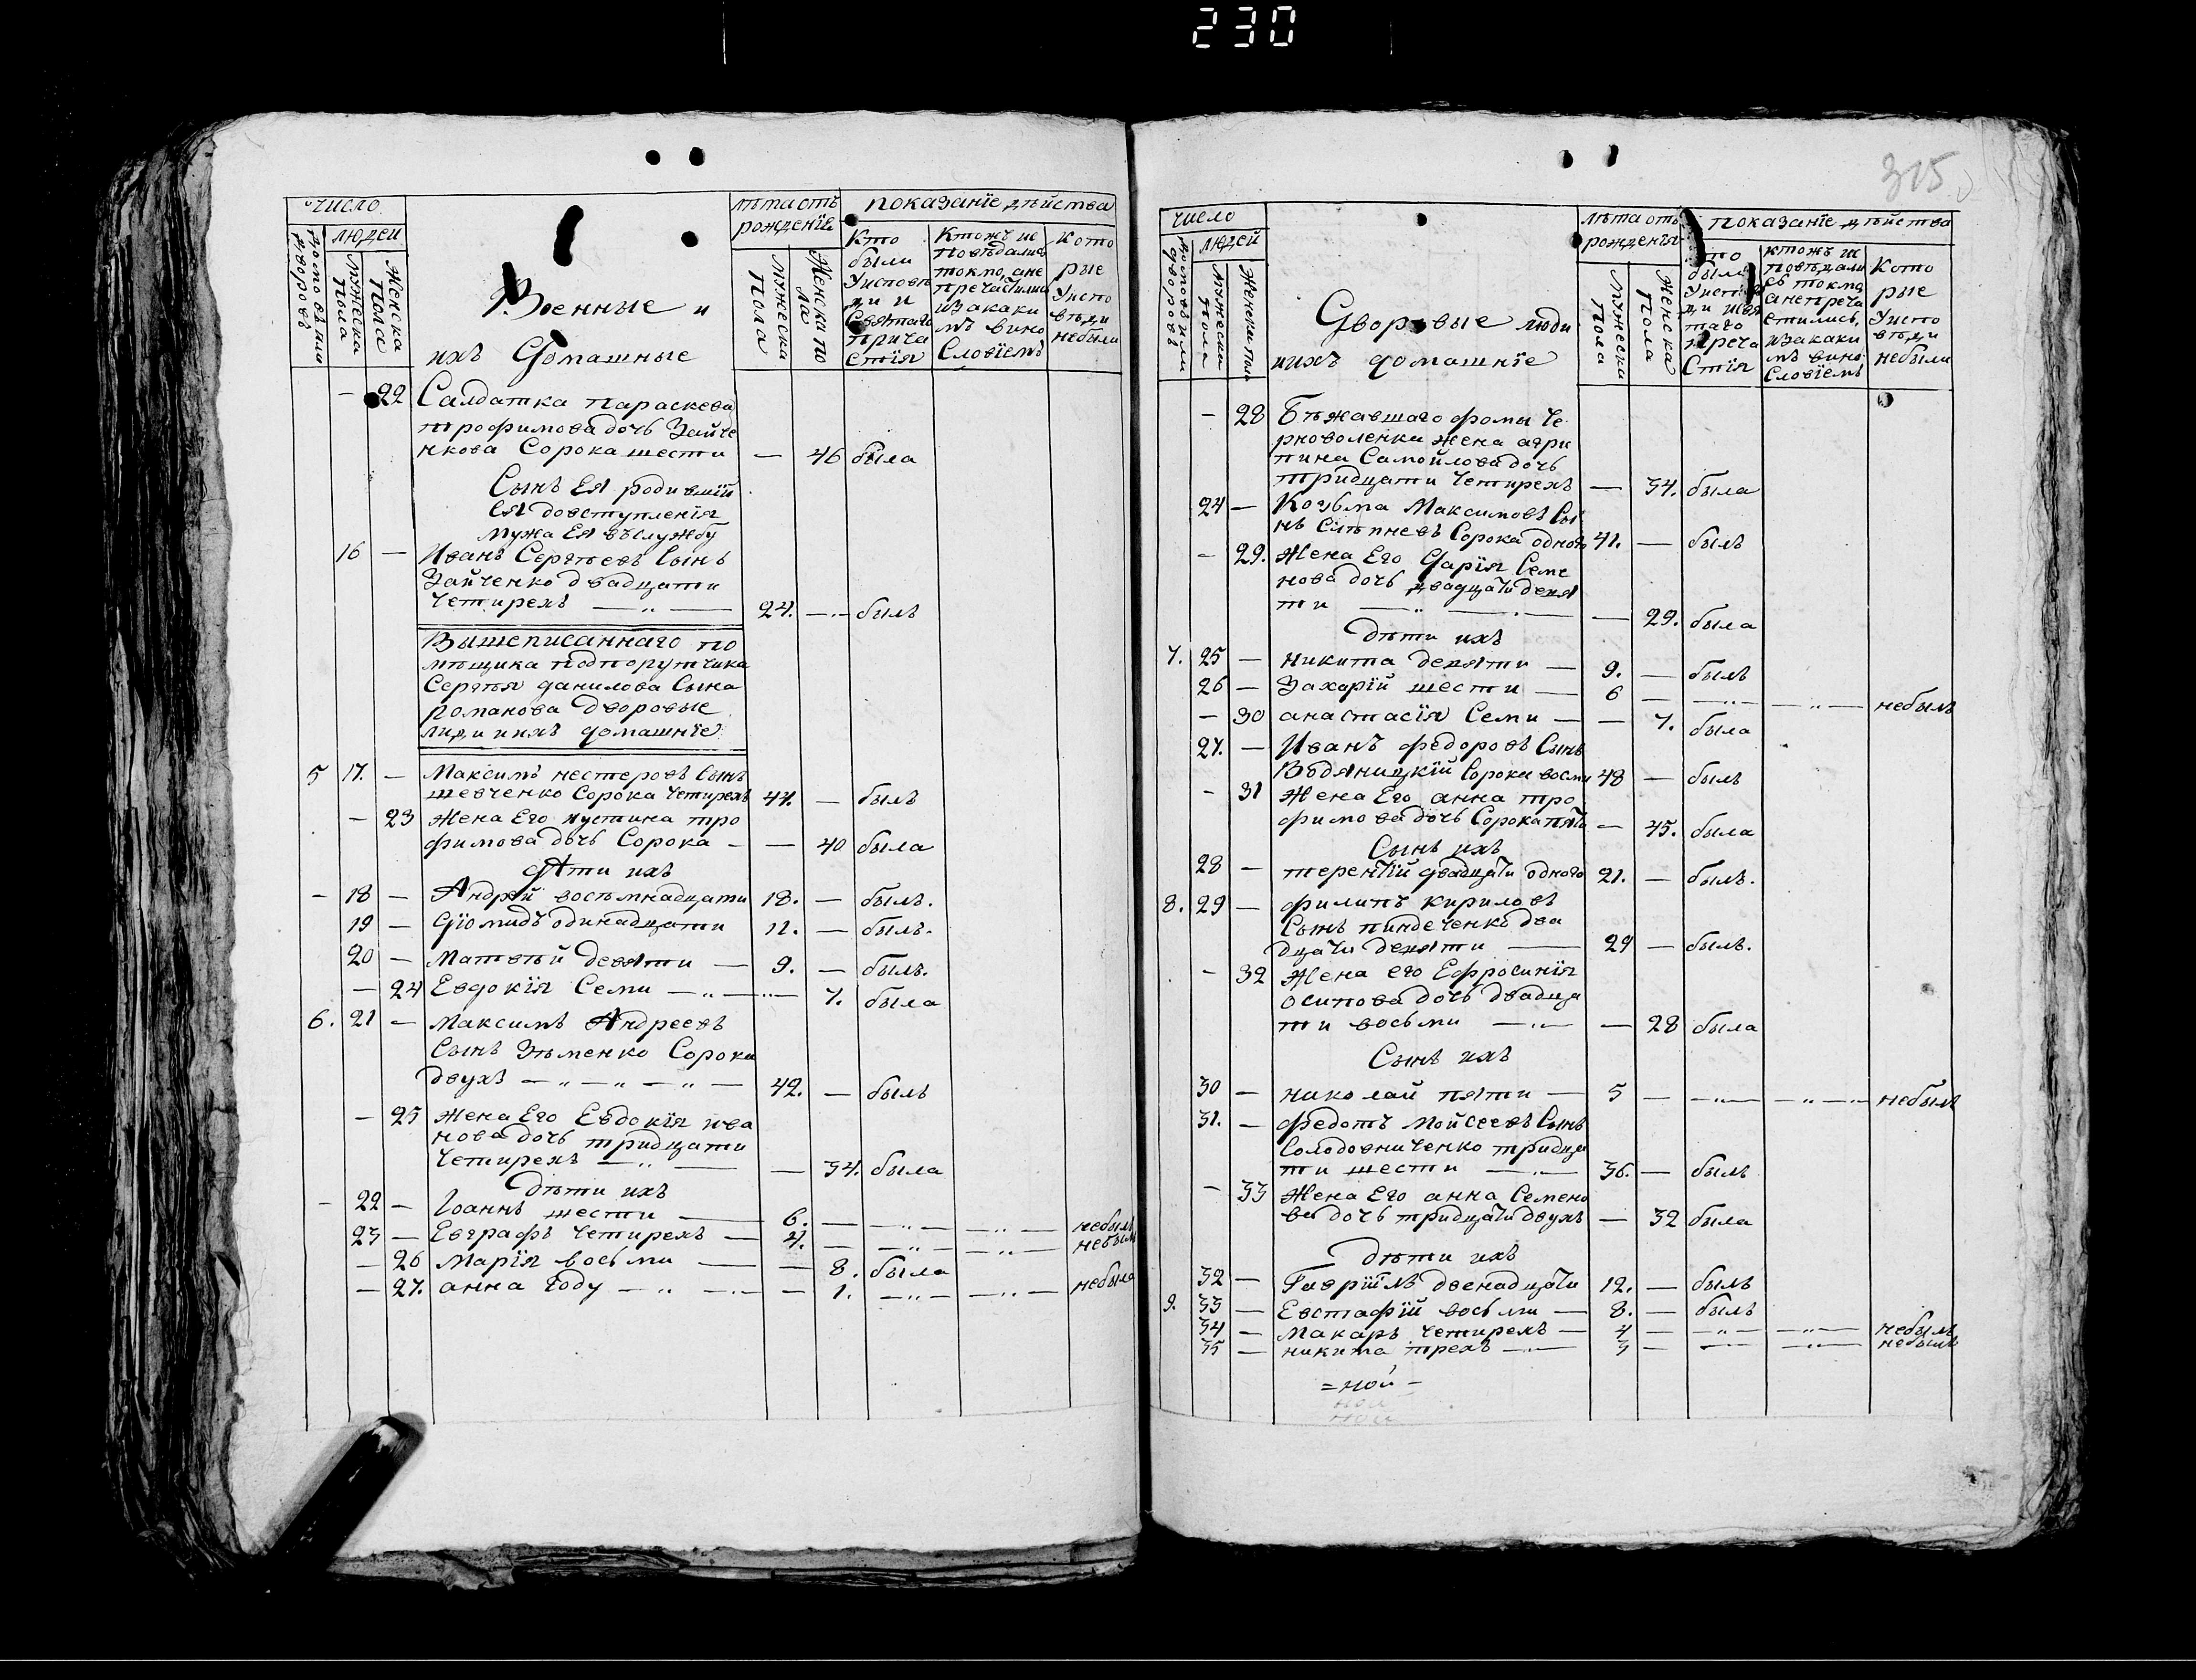 230
число
людей
домовъ или дворовъ
мужеска пола
женска пола
Военные и
ихъ Домашные
лѣта отъ рожденїя
мужеска пола
Женска пола
показанїе дѣйства
Кто были Уисповѣди и Святаго причастїя
Ктожъ исповѣдалися токмо, а непречастились изакакимъ винословїемъ
Которые Уисповѣди небыли
— 22 Салдатка параскева
трофимова дочь Зайче
нкова Сорока шести — 46 была
Сынъ Ея родившїй
ся довступленїя
мужа Ея въслужбу
16 — Иванъ Сергѣевъ Сынъ
Зайченко двадцати
четирехъ — „ — 24. — „ — былъ
Вышеписаннаго по
мѣщика подпорутчика
Сергѣя данилова Сына
романова дворовые
люди иихъ домашнїе
5 17. — Максимъ нестеровъ Сынъ
шевченко Сорока четирехъ 44. — былъ
— 23 Жена Его иустина тро
фимова дочь Сорока — — 40 была
дѣти ихъ
— 18 — Андрей восѣмнадцати 18. — былъ.
19 — Дїомидъ одинадцати 11. — былъ.
20 — Матвѣй девяти — 9. — былъ.
— 24 Евдокїя Семи — „ — „ — 7. была
6. 21 — Максимъ Андреевъ
Сынъ Зѣменко Сорока
двухъ — „ — „ — „ — 42. — былъ
— 25 Жена Его Евдокїя ива
нова дочь тридцати
Четирехъ — „ — — 34. была
Дѣти ихъ
— 22 — Іоаннъ шести — 6. — — „ — — „ — небылъ
23 — Евграфъ Четирехъ — 4. — — „ — — „ — небылъ
— 26 Марїя восьми — — 8. была
— 27. анна Году — „ — „ — — 1. — „ — — „ — небыла
315
число
людей
домовъ или дворовъ
мужеска пола
Женска пола
Дворовые люди
иихъ домашнїе
лѣта отъ рожденїя
мужеска пола
Женска пола
показанїе дѣйства
Кто были Уисповѣди исвятаго пречастїя
ктожъ исповѣдались токмо, а непречастились, изакакимъ винословїемъ
Которые Уисповѣди небыли
— 28 Бѣжавшаго фомы Че
рноволенки жена агри
пина Самойлова дочь
тридцати четирехъ — 34. была
24 — Козьма Максимовъ Сы
нъ Слѣпневъ Сорока одного 41. — былъ
— 29. Жена Его Дарїя Семе
нова дочь двадцати девя
ти — „ — „ — — 29. была
дѣти ихъ
7. 25 — никита девяти — 9. — былъ
26 — Захарїй шести — 6 — — „ — — „ — небылъ
— 30 анастасїя Семи — — 7. была
27. — Иванъ федоровъ Сынъ
Водяницкїй Сорока восми 48 — былъ
— 31 Жена Его анна тро
фимова дочь Сорока пяти — 45. была
Сынъ ихъ
28 — терентїй двадцати одного 21. — былъ.
8. 29 — филипъ кириловъ
Сынъ пиндеченко два
дцати девяти — 29 — былъ.
— 32 Жена его Ефросинїя
осипова дочь двадца
ти восьми — „ — — 28 была
Сынъ ихъ
30 — николай пяти — 5 — — „ — — „ — „ — небылъ
31. — федотъ Мойсеевъ Сынъ
Солодовниченко тридца
ти шести — „ — 36. — былъ
— 33 Жена Его анна Семено
ва дочь тридцати двухъ — 32 была
дѣти ихъ
32 — Гаврїилъ двенадцати 12. — былъ
9. 33 — Евстафїй восьми — 8. — былъ
34 — Макаръ четирехъ — 4 — — „ — — „ — небылъ
35 — никита трехъ — „ — 3 — — „ — — „ — небылъ
= ной —
ной
ной